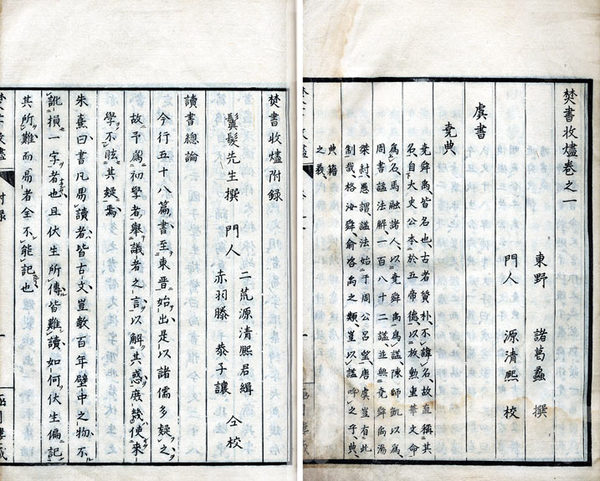 焚書收燼卷之一
東野 諸葛蠡 撰
門人 源清熙 校
虞書
堯典
堯舜禹皆名也古者質朴不諱名故直稱其
名自大史公本於五帝德以放勲重華文命
為名馬融諸人以堯舜禹為謚陳師凱以為
周書謚法解一百八十二謚並無堯舜禹湯
桀紂應謂謚法始于周公呂望唐虞豈有此
制哉格汝舜俞咨禹之類豈以謚呼之乎典
典籍
之義
焚書收燼附録
鬒髪先生撰 門人 二荒源清熙君緝
赤羽滕 恭子讓 仝校
讀書總論
今行五十八篇書至東晋始出是以諸儒多疑之
故予爲初學者舉議者之言以解其惑庶幾使來
學不眩其疑焉
朱熹曰書凡易讀者皆古文豈數百年壁中之物不
訛損一字者也且伏生所傳皆難讀如何伏生偏記
其所難而易者全不能記也
附録